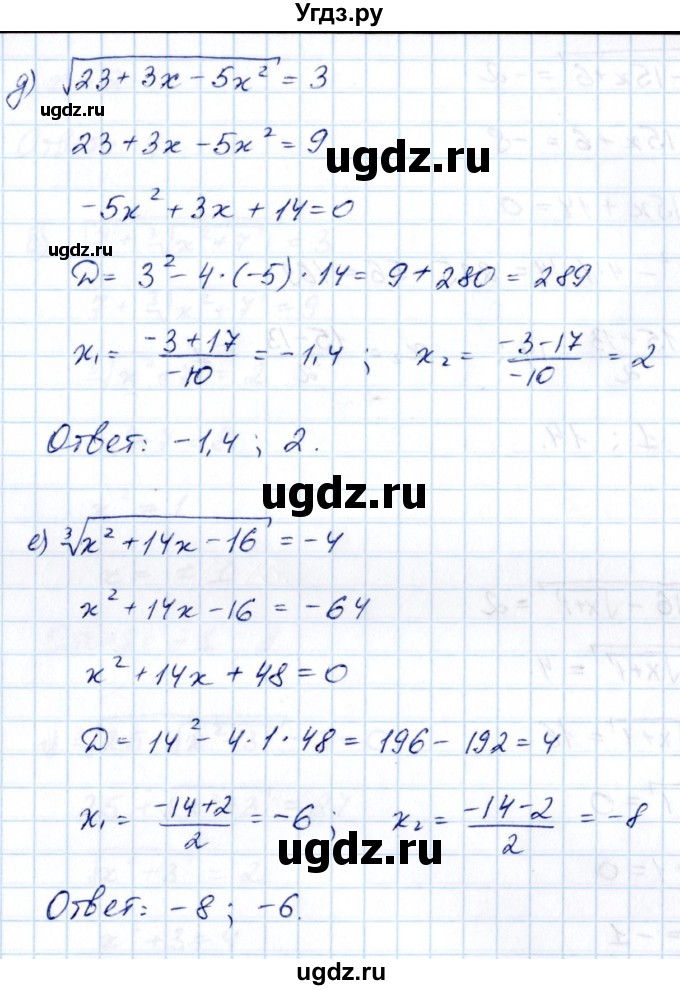 Угдз.ру
д) √(23 + 3x - 5x²) = 3
ugdz.ru
23 + 3x - 5x² = 9
ugdz.ru
-5x² + 3x + 14 = 0
ugdz.ru
Д = 3² - 4 · (-5) · 14 = 9 + 280 = 289
x₁ = (-3 + 17)/(-10) = -1,4 ; x₂ = (-3 - 17)/(-10) = 2
Ответ: -1,4 ; 2.
ugdz.ru
е) ∛(x² + 14x - 16) = -4
x² + 14x - 16 = -64
x² + 14x + 48 = 0
Д = 14² - 4 · 1 · 48 = 196 - 192 = 4
x₁ = (-14 + 2)/2 = -6 ; x₂ = (-14 - 2)/2 = -8
ugdz.ru
Ответ: -8 ; -6.
ugdz.ru